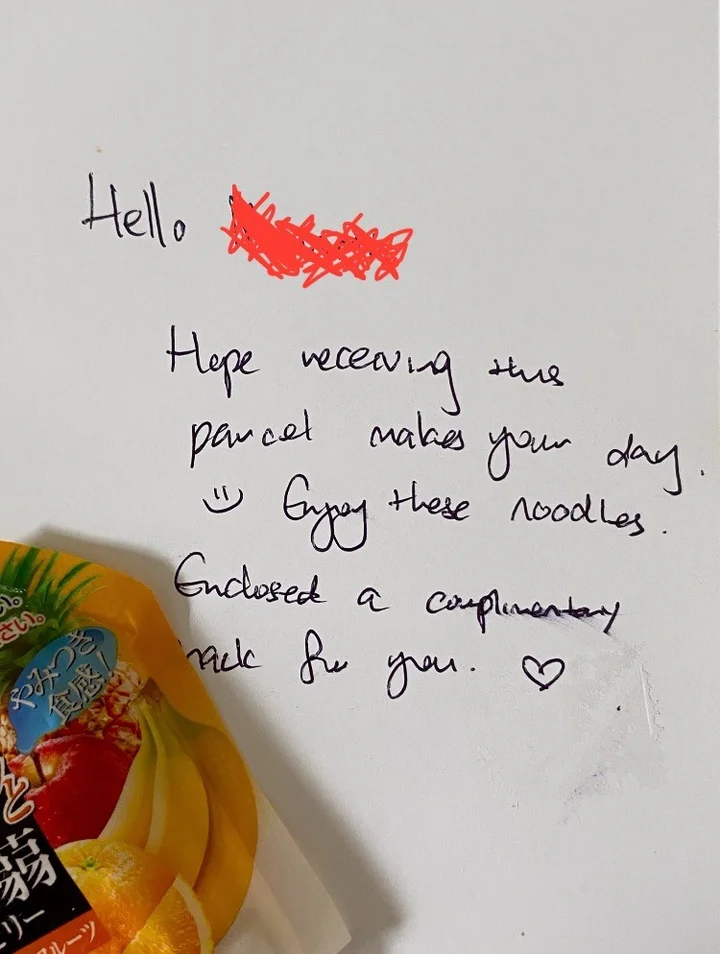 Hello
Hope receiving this
parcel makes your day.
Enjoy these noodles.
Enclosed a complimentary
for you. ♡
さい。
やみつき
食感!
と
蒟
リー
ルーツ